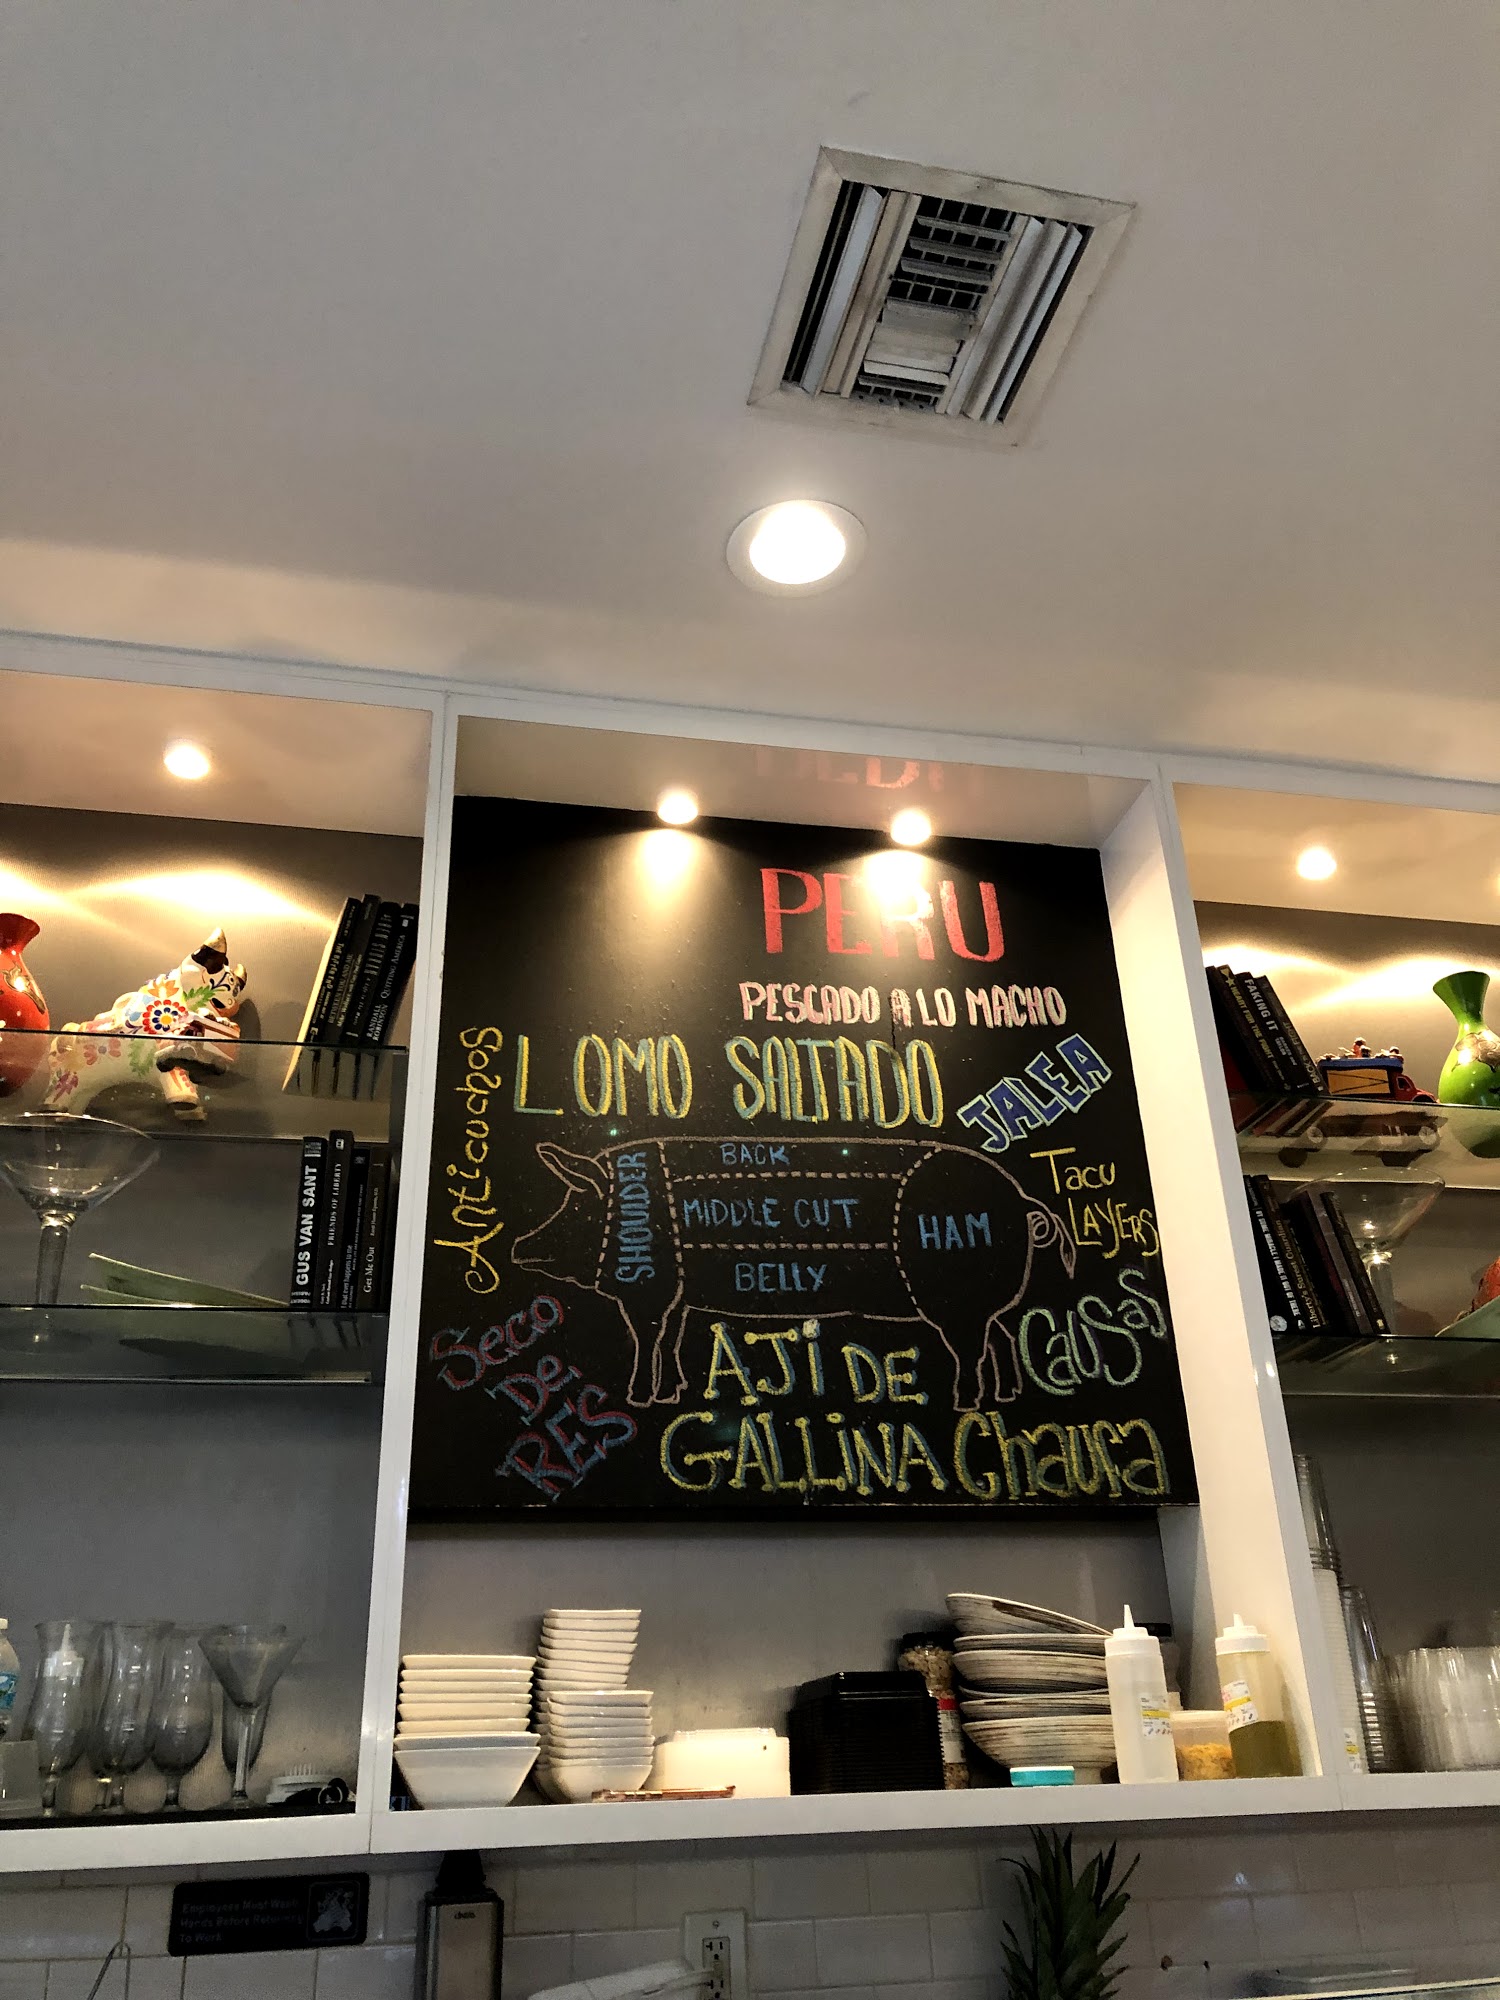 PERU
PESCADO A LO MACHO
LOMO SALTADO
JALEA
Anticuchos
BACK
SHOULDER
MIDDLE CUT
HAM
BELLY
Tacu
LAYERS
Seco
De
RES
Causas
AJI DE
GALLINA
Chaufa
QUITTING AMERICA
RANDALL
ROBINSON
GUS VAN SANT
FRIENDS OF LIBERTY
Get Me Out
FAKING IT
Employees Must Wash
Hands Before Returning
To Work